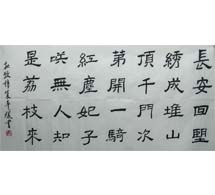 長安回望
綉成堆山
頂千門次
第開一騎
紅塵妃子
咲無人知
是荔枝來
杜牧詩